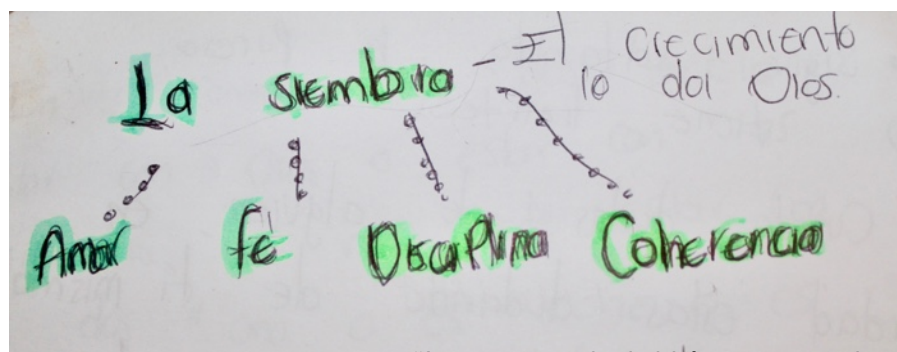 La siembra - El Crecimiento
lo da Dios.
Amor fe Disciplina Coherencia